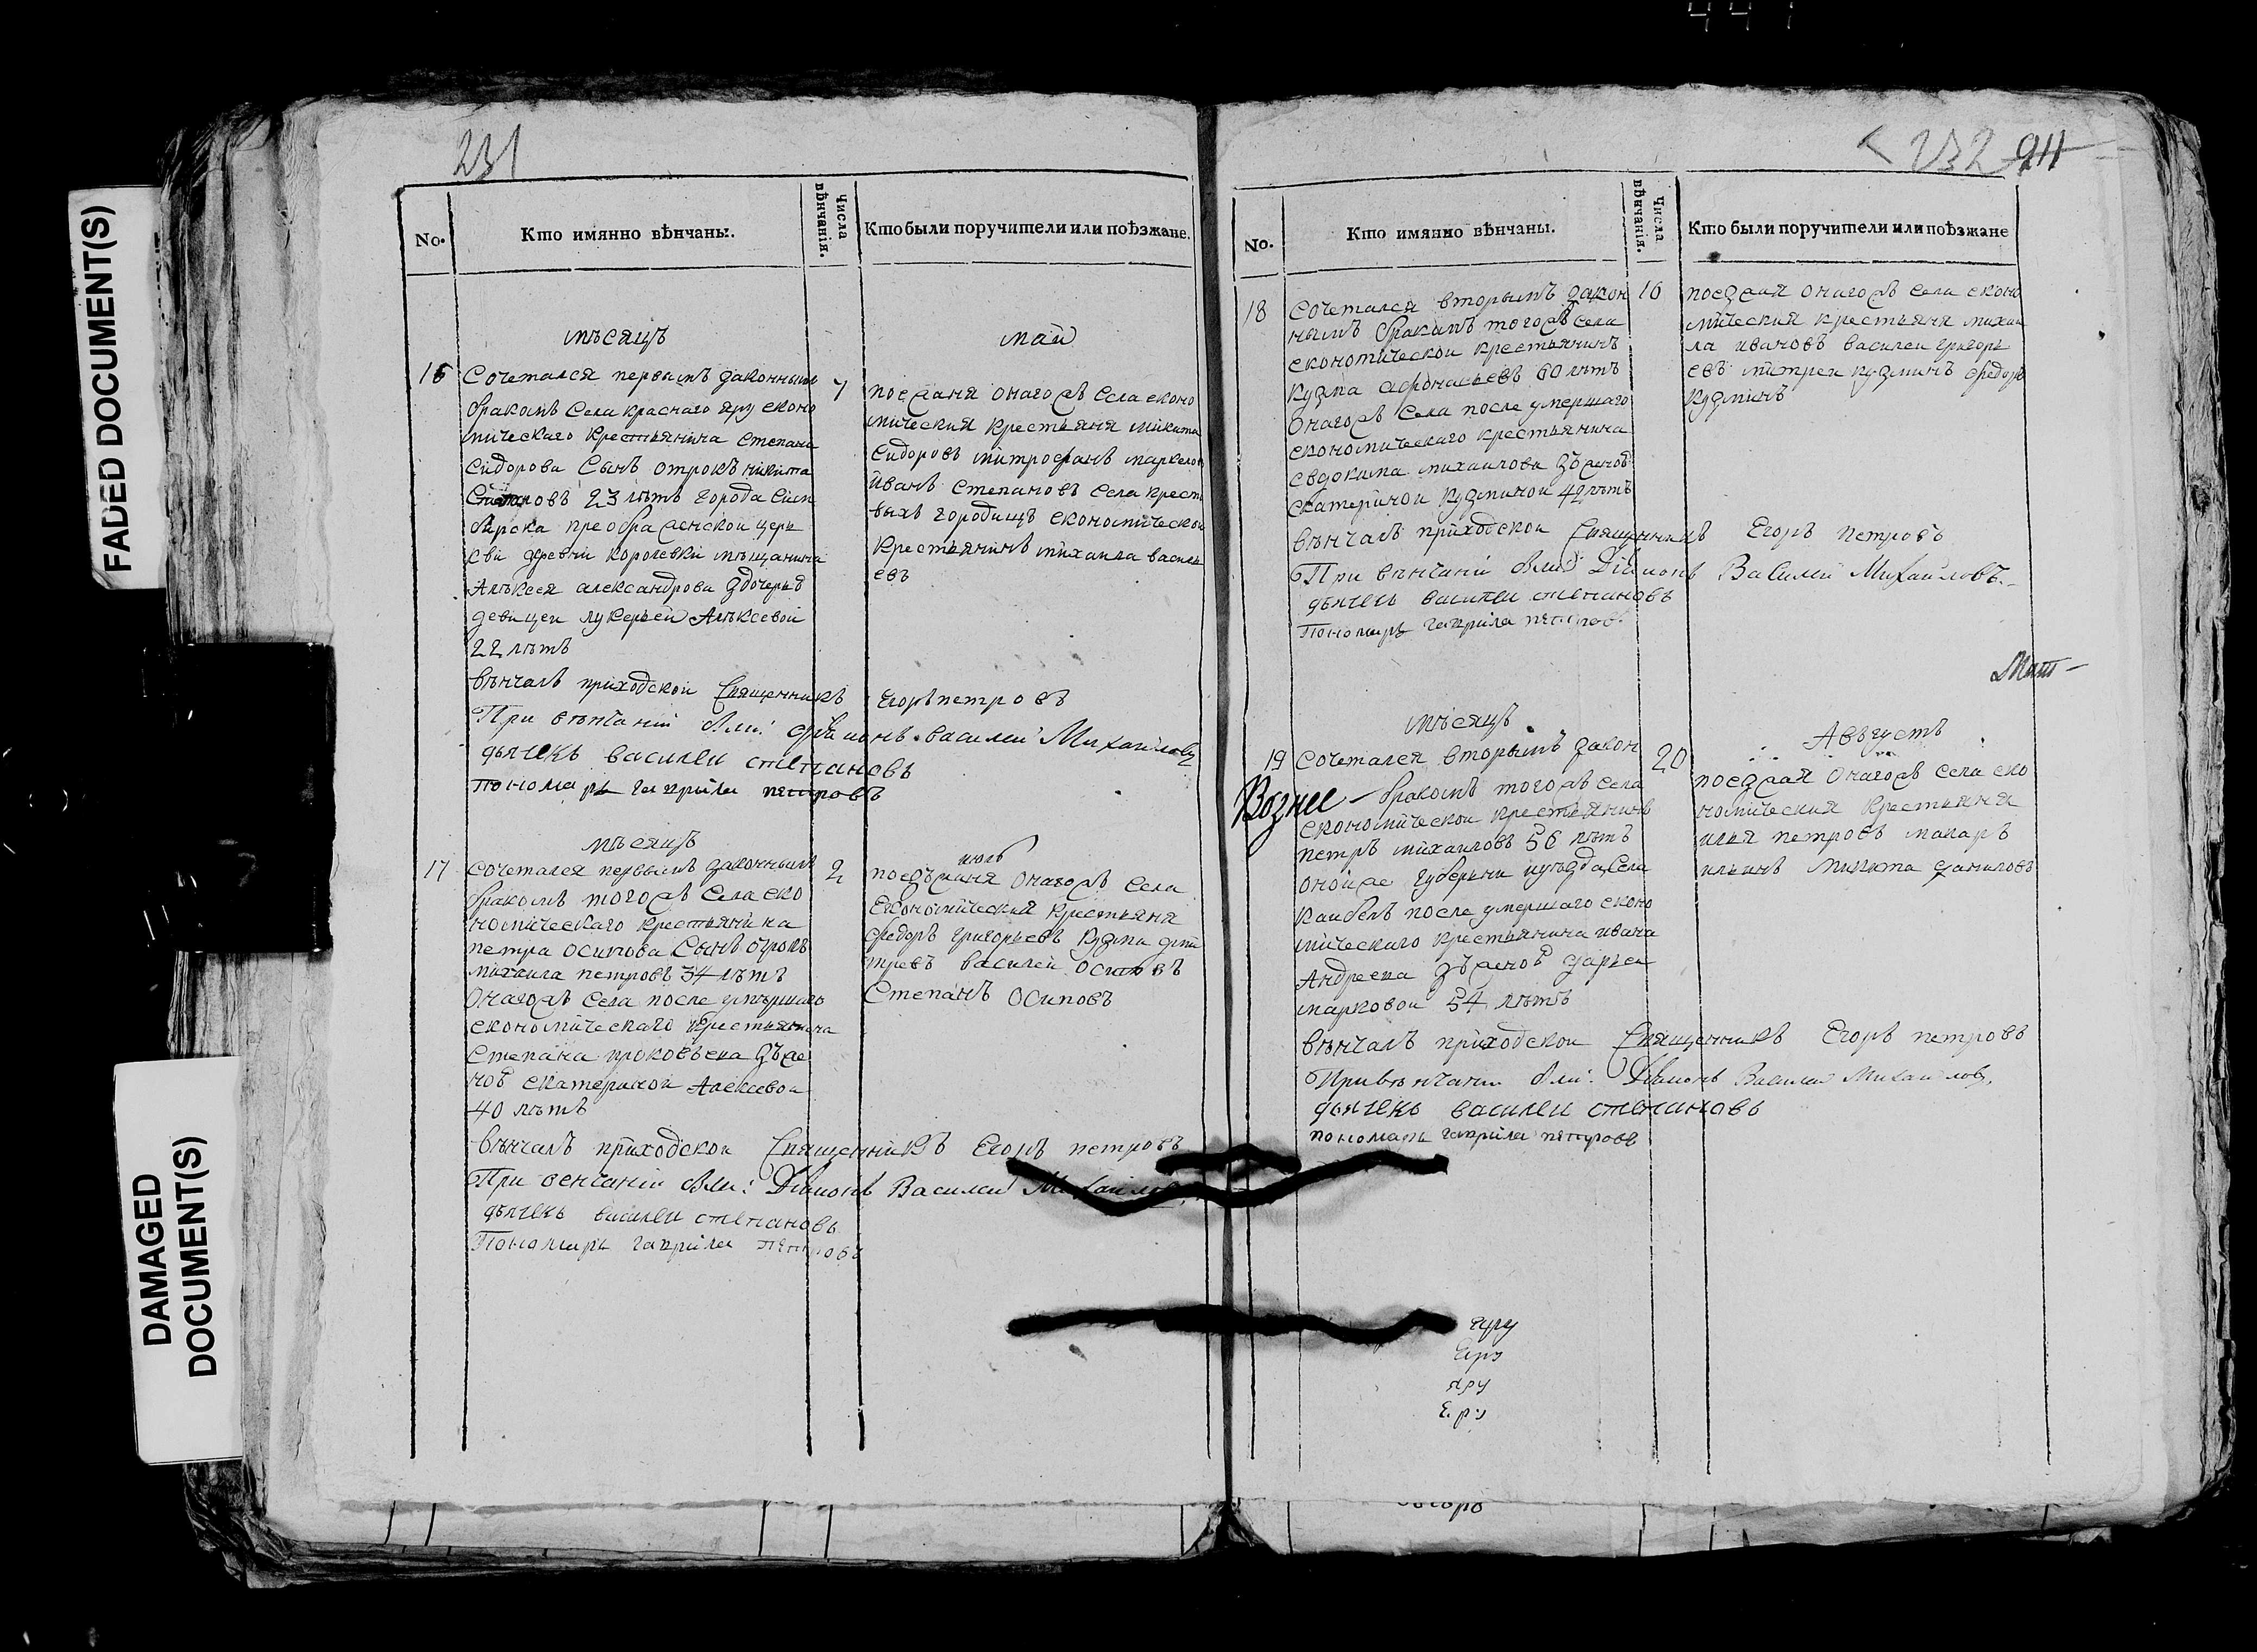 441
FADED DOCUMENT(S)
DAMAGED
DOCUMENT(S)
231
No.
Кто имянно вѣнчаны.
Числа
вѣнчанія.
Кто были поручители или поѣзжане.
мѣсяцъ
май
16
Сочетался первымъ законнымъ
бракомъ Села краснаго яру еконо
мическаго крестьянина степана
Сидорова Сынъ отрокъ никита
23 лѣтъ города Син
бирска преображенской церк
кви деревни королевки мѣщанина
Алѣксея александрова здочерью
девицеи лукерьей Алѣксевой
22 лѣтъ
7
поезжаня онагожъ села еконо
мическия крестьяня микита
Сидоровъ митрофанъ маркелов
иванъ степановъ села крест
выхъ городищъ економическои
крестьянинъ михаила василь
евъ
вѣнчалъ приходской Священникъ Егоръ петровъ
При вѣнчаніи были: дїяконъ василей Михайловъ
дьячекъ василеи степановъ
Пономарь гаврила петровъ
мѣсяцъ
июль
17
сочетался первымъ законнымъ
бракомъ тогожъ села еко
номическаго крестьянина
петра осипова Сынъ отрокъ
михаила петровъ 34 лѣтъ
онагожъ села после умѣршаго
економическаго крестьянина
Степана прокофьева зъже
ной екатериной Алексевой
40 лѣтъ
2
поезъжаня онагожъ села
Економическия крестьяня
федоръ григорьевъ кузма дми
тревъ василей осиповъ
Степанъ осиповъ
вѣнчалъ приходской Священникъ Егоръ петровъ
При венчаніи были: Дїяконъ Василей Михайловъ
дьячекъ василеи степановъ
Пономарь гаврила петровъ
232 911
No.
Кто имянно вѣнчаны.
Числа
вѣнчанія.
Кто были поручители или поѣзжане
18
Сочетался вторымъ закон
нымъ бракимъ тогожъ села
економической крестьянинъ
кузма афонасьевъ 60 лѣтъ
онагожъ села после умершаго
економическаго крестьянина
евдокима михаилова зъженой
екатериной кузминой 42 лѣтъ
16
поезжая онагожъ села еконо
мическия крестьяня михаи
ла ивановъ василеи григорь
евъ митреи кузминъ федоръ
кузминъ
вѣнчалъ приходской Священникъ Егоръ петровъ
При вѣнчаніи были Дїяконъ Василей Михайловъ
дьячекъ василеи степановъ
Пономарь гаврила петровъ
мѣсяцъ
Августъ
19
Сочетался вторымъ закон
бракомъ тогожъ села
економической крестьянинъ
петръ михаиловъ 56 лѣтъ
онойже губерьни иуѣзда села
каибелъ после умершаго еконо
мическаго крестьянина ивана
Андреева зъженой дарьеи
марковой 54 лѣтъ
20
поезжая онагожъ села еко
номическия крестьяня
илья петровъ макаръ
ильинъ микита даниловъ
вѣнчалъ приходской Священникъ Егоръ петровъ
При вѣнчани были: Дїяконъ Василей Михаиловъ
дьячекъ василеи степановъ
пономарь гаврила петровъ